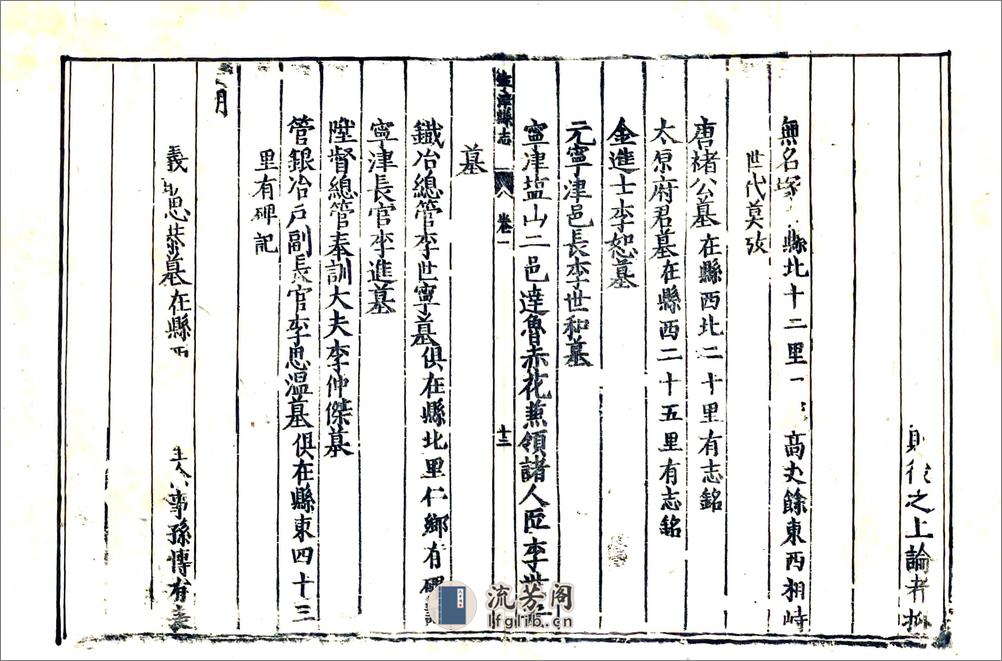 則後之上論者
無名塚 縣北十二里 高丈餘東西相峙
世代莫攷
唐褚公墓在縣西北二十里有志銘
太原府君墓在縣西二十五里有志銘
金進士李恕墓
元寧津邑長李世和墓
寧津塩山二邑達魯赤花兼領諸人匠李世
寧津縣志 卷一 十二
墓
鐵冶總管李世寧墓俱在縣北里仁鄉有碑
寧津長官李進墓
陞督總管奉訓大夫李仲傑墓
管銀冶戶副長官李思温墓俱在縣東四十三
里有碑記
明
義 思恭墓在縣西 事孫慱有
流芳阁
lfglib.cn